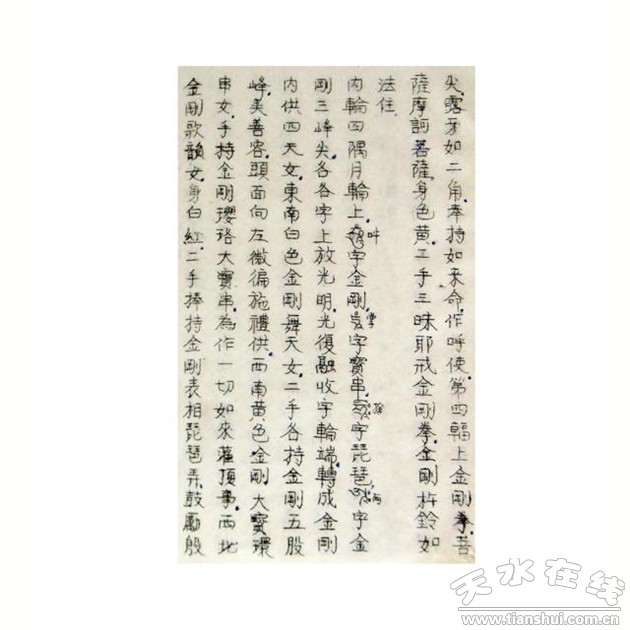 尖露牙如二角奉持如來命作呼使第四輻上金剛拳菩
薩摩訶菩薩身色黄二手三昧耶戒金剛拳金剛杵鈴如
法住
内輪四隅月輪上字金剛字寶串字琵琶字金
叶
掌
剛三峰尖各各字上放光明光復融收字輪端轉成金剛
内供四天女東南白色金剛舞天女二手各持金剛五股
峰美善容頭面向左微偏施禮供西南黄色金剛大寶環
串女手持金剛瓔珞大寶串為作一切如來灌頂事西北
金剛歌韻女身白紅二手捧持金剛表相琵琶弄鼓勵殷
天水在线
www.tianshui.com.cn